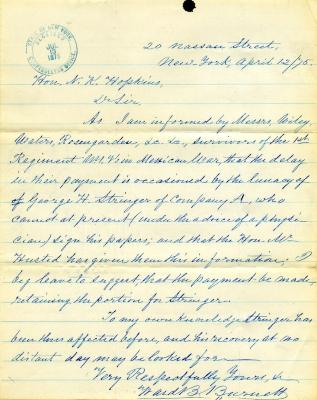 20 Nassau Street,
New York, April 12/75.
Hon. N. K. Hopkins,
Dr Sir,
As I am informed by Messrs, Wiley,
Waters, Rosengarden, &c. &c., survivors of the 1st
Regiment N.Y.V. in Mexican War, that the delay
in their payment is occasioned by the lunacy of
of George H. Stringer of Company A, who
cannot at present (under the advice of a physi
cian) sign his papers; and that the Hon. Mr
Husted has given them this information. I
beg leave to suggest, that the payment be made,
retaining the portion for Stringer.
To my own knowledge Stringer has
been thus affected before, and his recovery at no
distant day may be looked for.
Very Respectfully Yours, &
Ward B. Burnett